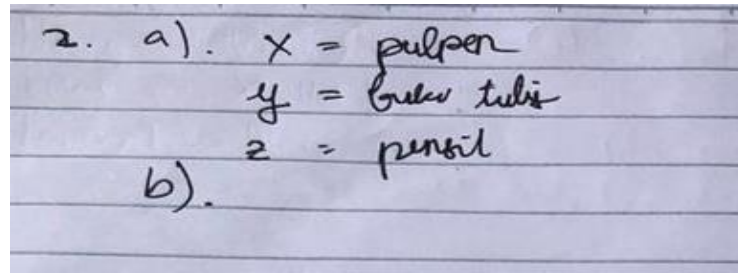 2. a). x = pulpen
y = buku tulis
z = pensil
b).